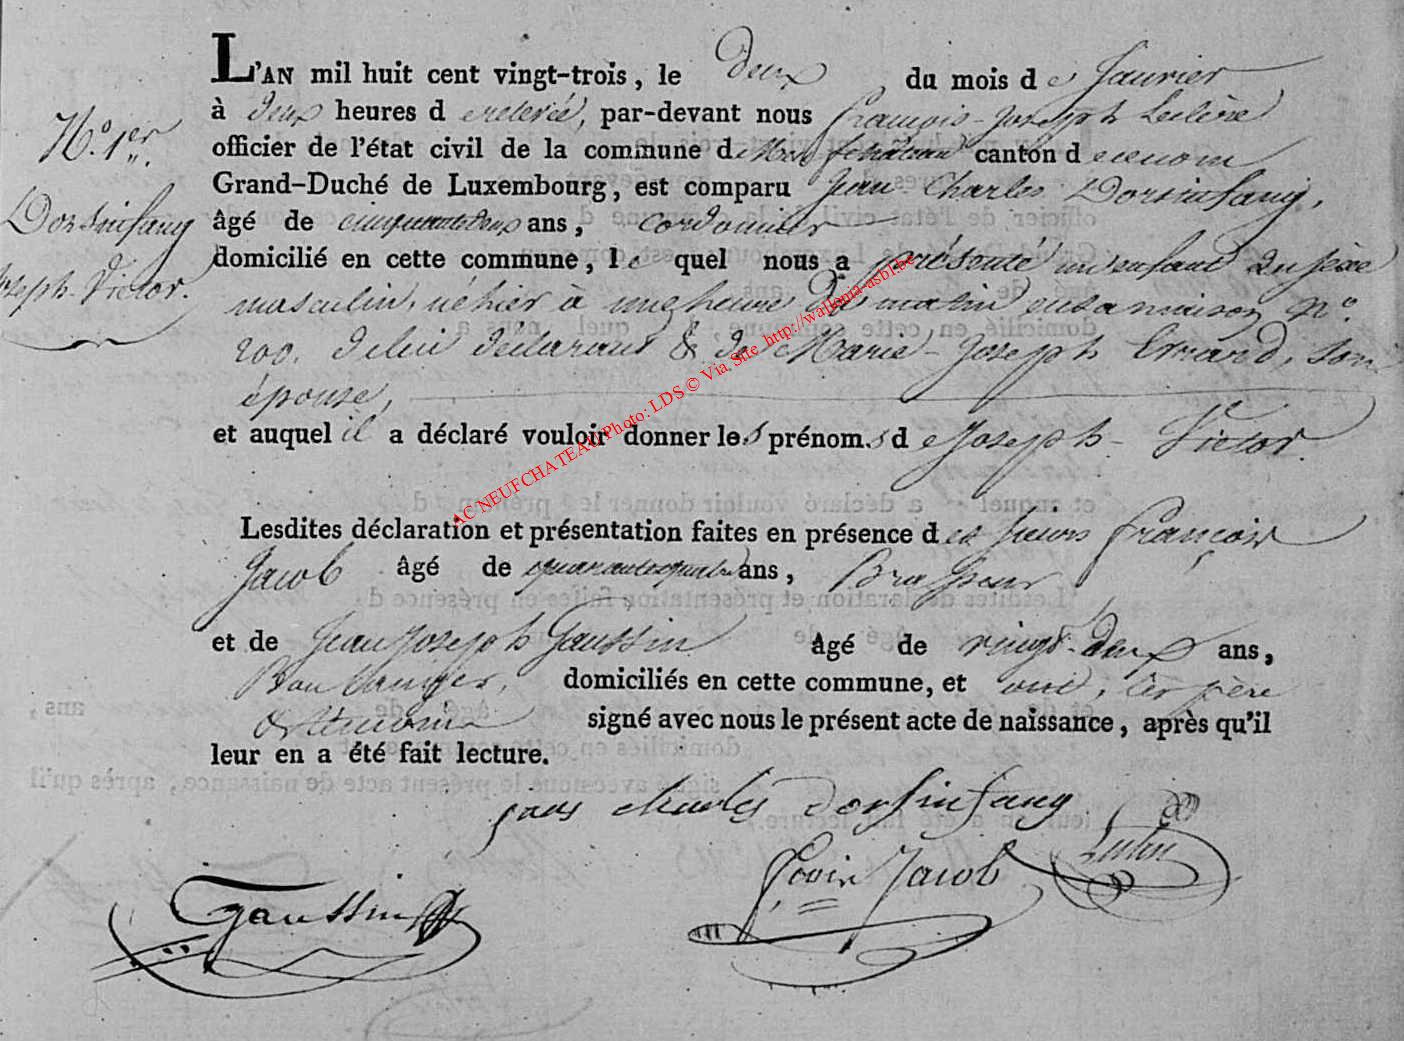 L'AN mil huit cent vingt-trois, le deux du mois de Janvier
à deux heures de relevée, par-devant nous François-Joseph Leclère
officier de l'état civil de la commune de Neufchâteau canton de ce nom
Grand-Duché de Luxembourg, est comparu Jean Charles Dorsinfang,
âgé de cinquante deux ans, cordonnier
domicilié en cette commune, le quel nous a présenté un enfant du sexe
masculin, né hier à une heure du matin en sa maison N.o
200. de lui déclarant & de Marie-Joseph Evrard, son
épouse,
et auquel il a déclaré vouloir donner les prénoms de Joseph-Victor.
Lesdites déclaration et présentation faites en présence des sieurs François
Jacob âgé de quarante quatre ans, Brasseur
et de Jean Joseph Gaussin âgé de vingt-deux ans,
Boulanger, domiciliés en cette commune, et ont, les père
et témoins signé avec nous le présent acte de naissance, après qu'il
leur en a été fait lecture.
N.o 1er.
Dorsinfang
Joseph-Victor.
jean charles dorsinfang
Jacob
Gaussin
AC NEUFCHATEAU Photo: LDS © Via Site http://wallonia-asbl.be